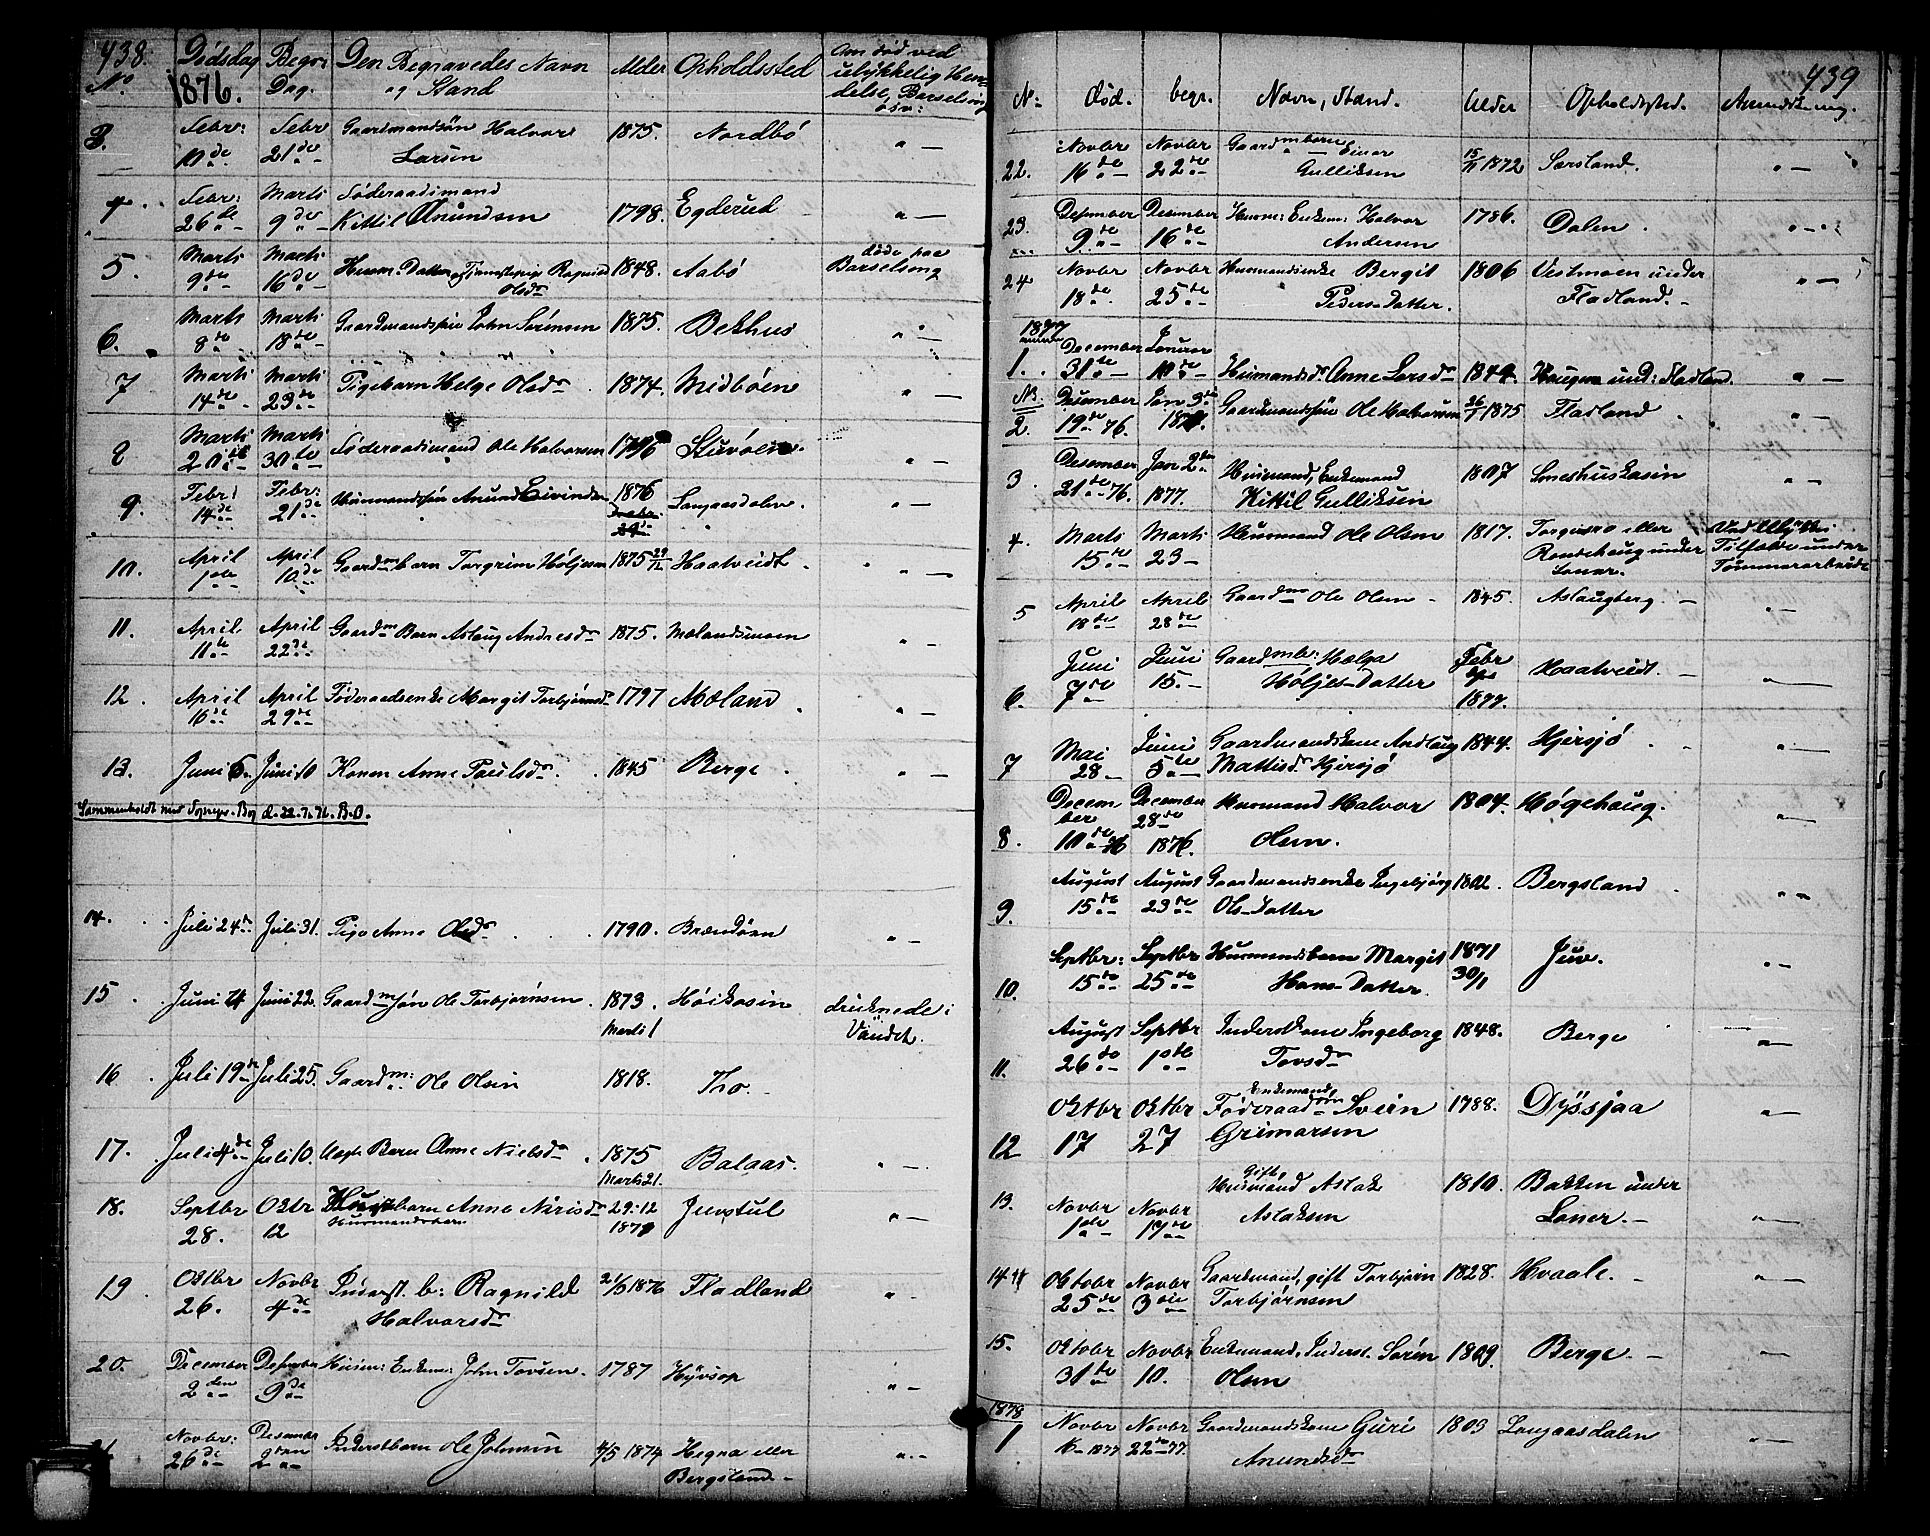 438. Dødsdag Begr: Den Begravedes Navn Alder Opholdssted Om død ved
No 1876. Dag. og Stand ulykkelig Hæn-
delse, Barselseng
osv:
3. Febr: Febr Gaardmandsøn Halvor 1875. Nordbö " —
10de 21de Larsen
4. Febr: Marts Föderaadsmand
26de 9de Kittil Anundsen 1798. Egderud " —
5. Marts Marts Husm. Datter og Tjenestepige Ragnild 1848. Aabö døde paa
9de 16de Olsdr Barselseng
6. Marts Marts Gaardmandssøn John Sørensen 1875. Bekhus " —
8de 18de
7 Marts Marts Pigebarn Helge Olsdr. 1874. Midböen " —
14de 23de
8 Marts Marts Föderaadsmand Ole Halvorsen 1796 Stuvöien " —
20de 30te
9. Febr: Febr: Husmandssøn Anund Eivindsen 1876 Langaasdalen. " —
14de 21de
10. April April Gaardm. barn Torgrim Höljesen 1875 29/12 Haatveidt. " —
1ste 10de
11. April April Gaardm Barn Aslaug Andresdr 1875. Mælandsmoen " —
11te 22de
12. April April Föderaadsenke Margit Torbjørnsdr 1797 Mæland. " —
16de 29de
13. Juni 6. Juni 10 Konen Anne Poulsdr. 1845 Berge. " —
Sammenholdt med Sognepr. Bog d. 22.7.76. B.O.
14. Juli 24de Juli 31. Pige Anne Olsdr 1790. Brændöen " —
15. Juni 4 Juni 22. Gaardm Søn Ole Torbjørnsen. 1873. Höikasin druknede i
Marts 1 Vandet.
16. Juli 19de Juli 25. Gaardm: Ole Olsen 1818. Tho.
17. Juli 4de Juli 10. Uægte Barn Anne Nielsdr. 1875 Balaas. " —
Marts 21.
18. Septbr Oktbr barn Anne Nirisdr 29-12 Juvstul " —
28. 12 Husmandsbarn 1871
19. Oktbr Novbr Inderst. b: Ragnild 21/5 1876 Fladland " —
26. 4de Halvorsdr
20. December Desember Husm: Enkem: John Torsen. 1787 Hyvsop " —
2den 9de
21. Novbr: Desember Inderstbarn Ole Johnsen 4/5 1874 Hegna eller " —
26de 2den Bergsland.
439
No. død. begr. Navn, Stand. Alder Opholdssted. Anmærkning.
22. Novbr Novbr Gaardmbarn Einar 15/11 1872 Sorsland. " —
16de 22de Gulliksen
23. Desember Desember Husm: Enkem: Halvor 1786. Dalen. " —
9de 16de Andersen
24 Novbr Novbr Husmandsenke Bergit 1806 Vestmoen under " —
18de. 25de Peders-Datter. Fladland.
1877
1. December Januar
31te 10de Husmandsd. Anne Larsdr 1849. Haugen und: Fladland. " —
NB.
2. Desember Jan 3de Gaardmandssøn Ole Halvorsen 26/1 1875 Fladland. " —
19de 76. 1877.
3. Desember Jan 2den Husmand, Enkemand 1807 Soneshuskasin " —
21de 76. 1877. Kittil Gulliksen
4. Marts Marts Husmand Ole Olsen 1817. Torgusro eller Ved Ulykkes
15de 23 Rondehaug under Tilfælde under
Loner. Tømmerarbeide
5 April April Gaardm Ole Olsen 1845. Aslaugberg. " —
18de 28de
6. Juni Juni Gaardmb: Helga Febr Haatveidt. " —
7de 15. Höljes-Datter 1877.
7 Mai Juni Gaardmandskone Andlaug 1844. Hjersjö " —
28 5te Mattisd. Hjersjö
8. Decem December Husmand Halvor 1804. Høgehaug. " —
ber 28de
10de 76 1876. Olsen.
9. August August Gaardmandsenke Ingebjörg 1802. Bergsland " —
15de 23de Ols-Datter
10. Septbr: Septbr Husmandsbarn Margit 1871 Juv. " —
15de 25de Hans-Datter. 30/1
11. August Septbr Inderstkone Ingeborg 1848. Berge " —
26de 1ste Torsdr
12 Oktbr Oktbr Enkemand Föderaadm Svein 1788. Dyssjaa " —
17 27 Grimarsen
13. Novbr Novbr Gift, Husmand Aslak 1810. Bakken under " —
1ste 17de Aslaksen Loner.
14 Oktobr Novbr Gaardmand, gift Torbjørn 1828. Hvaale. " —
25de 3die Torbjørnsen
15. Oktobr Novbr Enkemand, Inderst. Sørén 1809. Berge. " —
31de 10. Olsen
1878
1 Novbr Novbr Gaardmandskone Guri 1803 Langaasdalen " —
1877 22de 77. Anundsdr